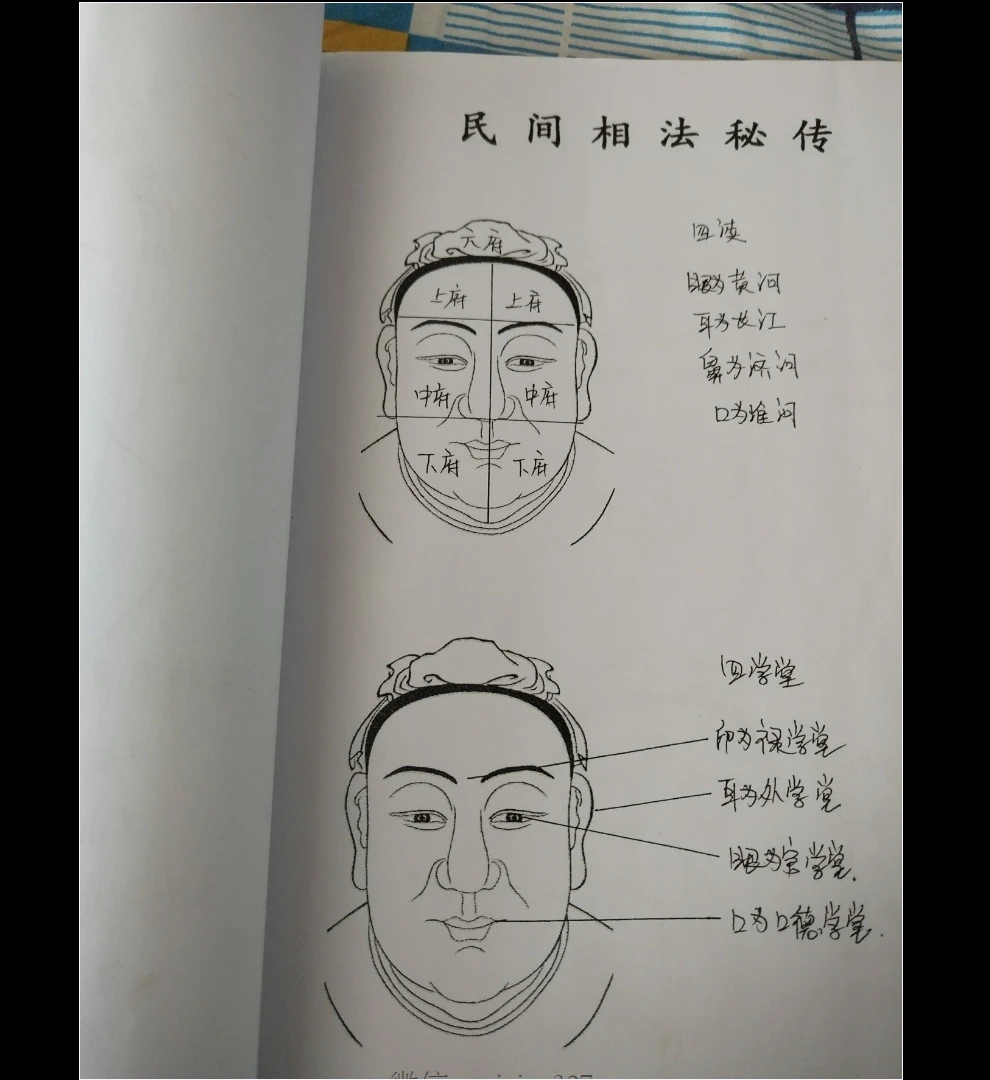 民间相法秘传
六府
上府 上府
中府 中府
下府 下府
四渎
眼为黄河
耳为长江
鼻为济河
口为淮河
四学堂
印为禄学堂
耳为外学堂
眼为官学堂.
口为口德学堂.